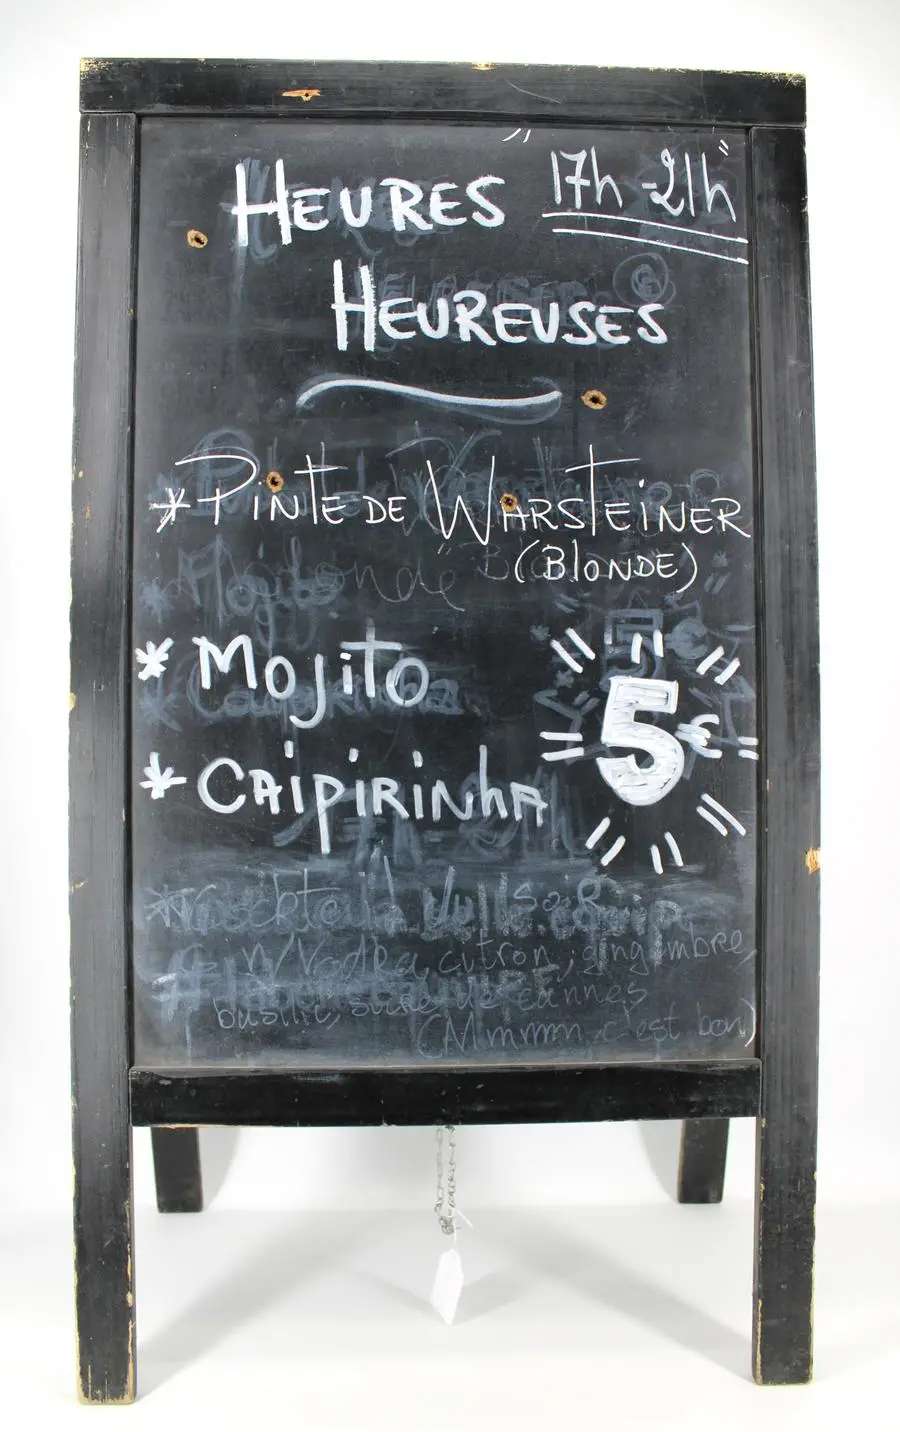 HEURES "17h-21h"
HEUREUSES
* PINTE DE WARSTEINER
(BLONDE)
* MOJITO
5€
* CAIPIRINHA
vodka, citron, gingembre,
basilic, sucre de cannes
(Mmmm c'est bon)